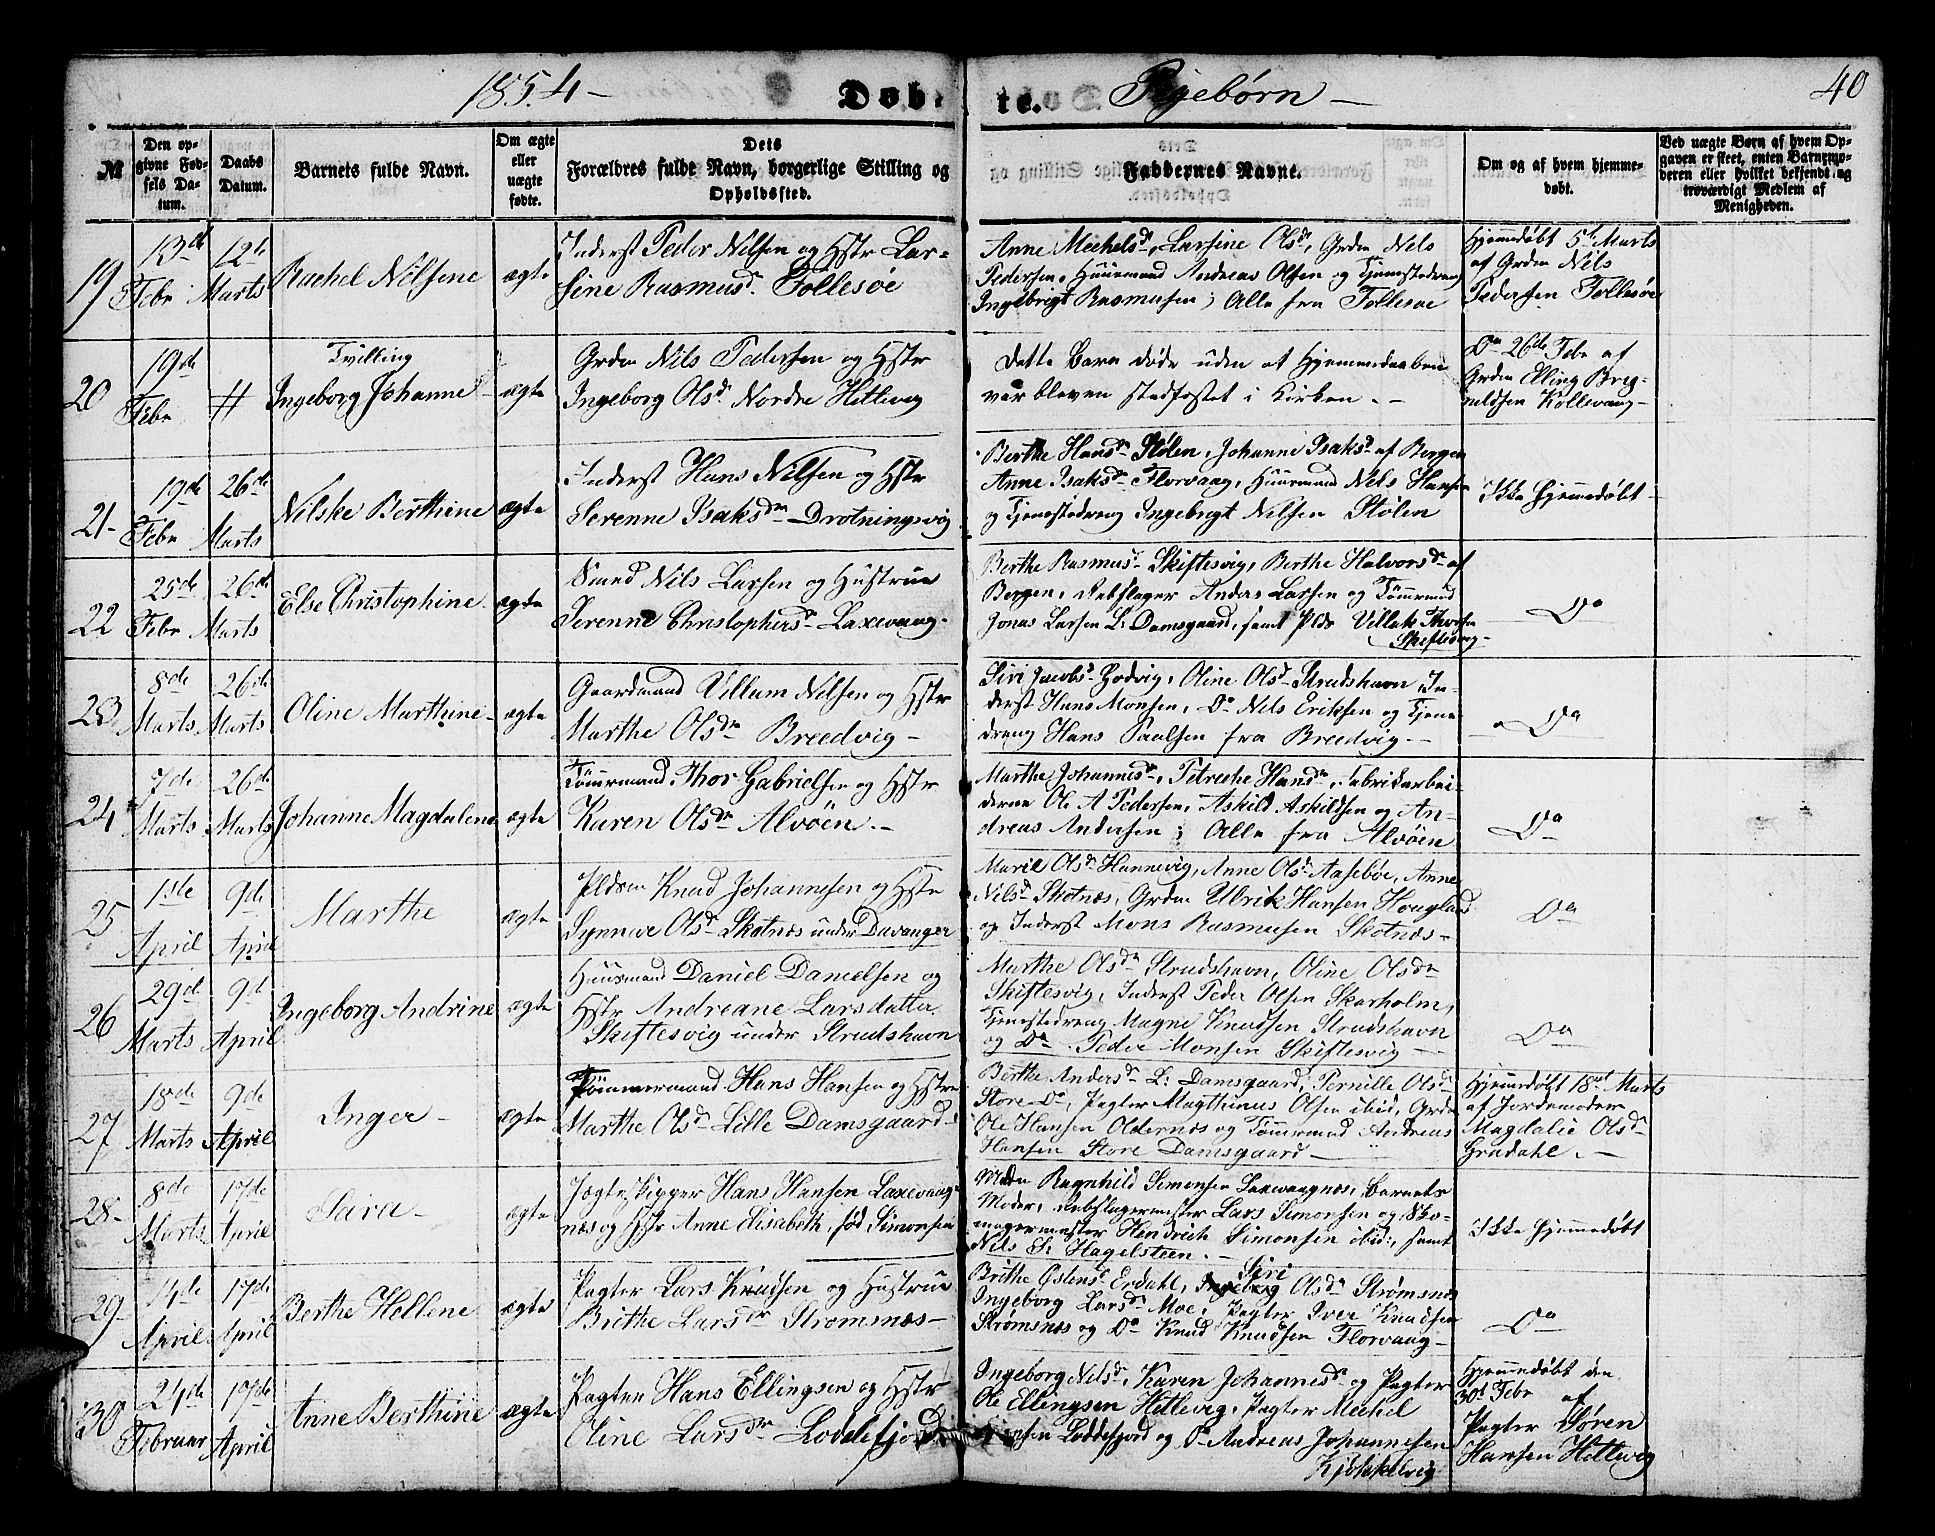 1854 -
Døbte.
Pigebørn -
40
№
Den opgivne Fødsels Datum.
Daabs Datum.
Barnets fulde Navn.
Om ægte eller uægte fødte.
Dets Forældres fulde Navn, borgerlige Stilling og Opholdssted.
Faddernes Navne.
Om og af hvem hjemmedøbt.
Ved uægte Børn af hvem Opgaven er skeet, enten Barnemoderen eller hvilket bekjendt og troværdigt Medlem af Menigheden.
19
13de Febr
12te Marts
Rachel Nilsine
ægte
Inderst Peder Nilsen og Hstr Lar-
sine Rasmusd. Follesøe
Anne Mechelsd, Larsine Olsd, Grdm Nils
Pedersen, Huusmand Andreas Olsen og Tjenestedreng
Ingebrigt Rasmusen; Alle fra Follesøe
Hjemmedøbt 5te Marts
af Grdm Nils
Pedersen Follesøe
20
19de Febr
#
Tvilling
Ingeborg Johanne
ægte
Grdm Nils Pedersen og Hstr
Ingeborg Olsd. Nordre Hetlevig
Dette Barn døde uden at Hjemmedaaben
var bleven stadfæstet i Kirken. -
Do 26de Febr af
Grdm Elling Breg-
nildsen Kollevaag -
21 -
19de Febr
26de Marts
Nilske Berthine
ægte
Inderst Hans Nilsen og Hstr
Serenne Isaksdr Drotningsvig
Berthe Hansd. Stølen, Johanne Isaksd af Bergen
Anne Isaksdr Florvaag, Huusmand Nils Hansen
og Tjenestedreng Ingebrigt Nilsen Stølen
Ikke hjemmedøbt -
22
25de Febr
26de Marts
Else Christophine
ægte
Smed Nils Larsen og Hustrue
Serenne Christophersdr Laxevaag.
Berthe Rasmusd. Skiftesvig, Berthe Halvorsdr af
Bergen, Rebslager Anders Larsen og Tømrmand
Jonas Larsen L: Damsgaard, samt Plds Villak Thorsen
Skiftesvig -
Do
23
8de Marts
26de Marts
Oline Marthine -
ægte
Gaardmand Villum Nilsen og Hstr
Marthe Olsdr Breedvig -
Siri Jacobsd Godvig, Oline Olsd Strudshavn In-
derst Hans Monsen, Do Nils Eriksen og Tjene-
dreng Hans Paulsen fra Breedvig. -
Do
24
7de Marts
26de Marts
Johanne Magdalena
ægte
Tømrmand Thor Gabrielsen og Hstr
Karen Olsdr Alvøen. -
Marthe Johannesdr, Petreche Hansdr, Fabrikarbei-
derne Ole A Pedersen, Askild Askildsen og An-
dreas Andersen; Alle fra Alvøen
Do
25
1ste April
9de April
Marthe
ægte
Pldsm Knud Johannesen og Hstr
Synneve Olsdr Skotnæs under Davanger
Marie Olsdr Hannevig, Anne Olsdr Aasebøe, Anne
Nilsd Skotnæs, Grdm Ulrik Hansen Hougland
og Inderst Mons Rasmusen Skotnæs -
Do
26
29de Marts
9de April
Ingeborg Andrine
ægte
Huusmand Daniel Danielsen og
Hstr Andreane Larsdatter
Skiftesvig under Strudshavn
Marthe Olsdr Strudshavn, Oline Olsdr
Skiftesvig, Inderst Peder Olsen Skarholm,
Tjenestedreng Magne Knudsen Strudshavn
og Do Peder Monsen Skiftesvig -
Do
27
18de Marts
9de April
Inger -
ægte
Tømmermand Hans Hansen og Hstr
Marthe Olsdr Lille Damsgaard -
Berthe Andersdr L: Damsgaard, Pernille Olsdr
Store Do, Pagter Magthinus Olsen ibid, Grdm
Ole Hansen Oldernæs og Tømrmand Andreas
Hansen Store Damsgaard -
Hjemmedøbt 18de Marts
af Jordemoder
Magdalie Olsdr
Gravdahl. -
28 -
8de Marts
17de April
Sara -
ægte
Jægteskipper Hans Hansen Laxevaag-
næs og Hstr Anne Elisabeth, fød Simonsen
Mdm Ragnhild Simonsen Laxevaagnæs, Barnets
Moder, Rebslagermester Lars Simonsen og Sko-
magermester Hendrich Simonsen ibid:, samt
Nils Hagelsteen. -
Ikke hjemmedøbt
29 -
14de April
17de April
Berthe Hellene
ægte
Pagter Lars Knudsen og Hustrue
Brithe Larsdr Strømsnæs -
Brithe Østensd. Erdahl, Siri Olsdr Strømsnæs
Ingeborg Larsdr Moe, Pagter Iver Knudsen
Strømsnæs og Do Knud Knudsen Florvaag -
Do
30
24de Februar
17de April
Anne Berthine
ægte
Pagter Hans Ellingsen og Hstr
Oline Larsdr Loddefjord
Ingeborg Nilsd, Karen Johannesdr og Pagter
Ole Ellingsen Hetlevig, Pagter Mechel
Loddefjord og Do Andreas Johannesen
Kjøkkelvig
Hjemmedøbt den
30t Febr af
Pagter Søren
Hansen Hetlevig